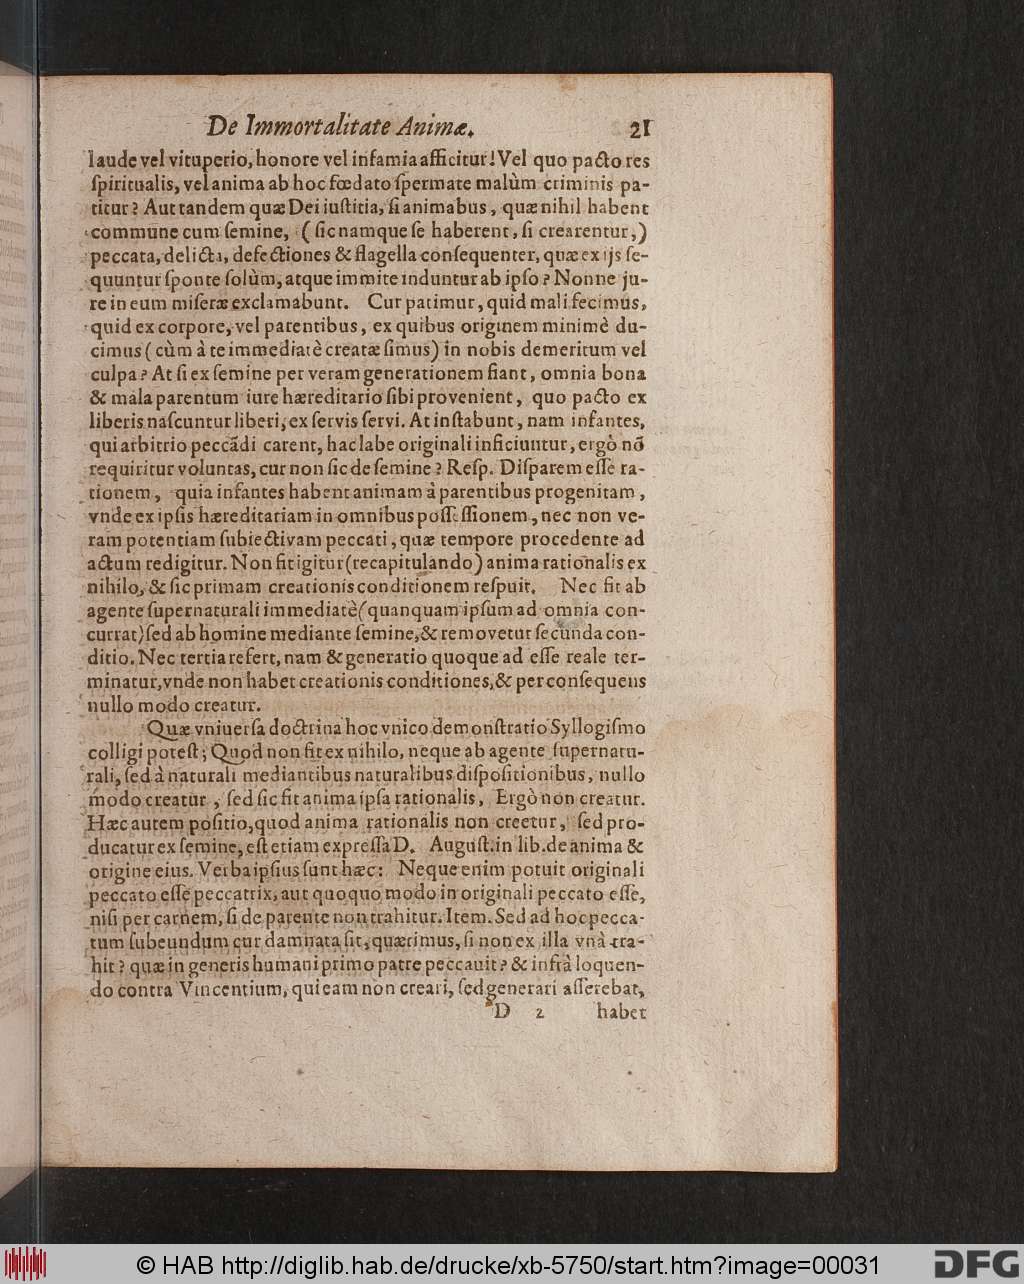 De Immortalitate Animæ. 21
laude vel vituperio, honore vel infamia afficitur! Vel quo pacto res
ſpiritualis, vel anima ab hoc fœdato ſpermate malùm criminis pa-
titur? Aut tandem quæ Dei iuſtitia, ſi animabus, quæ nihil habent
commune cum ſemine, (ſic namque ſe haberent, ſi crearentur,)
peccata, delicta, defectiones & flagella conſequenter, quæ ex ijs ſe-
quuntur ſponte ſolùm, atque immite induntur ab ipſo? Nonne ju-
re in eum miſeræ exclamabunt. Cur patimur, quid mali fecimus,
quid ex corpore, vel parentibus, ex quibus originem minimè du-
cimus (cùm à te immediatè creatæ ſimus) in nobis demeritum vel
culpa? At ſi ex ſemine per veram generationem fiant, omnia bona
& mala parentum iure hæreditario ſibi provenient, quo pacto ex
liberis naſcuntur liberi, ex ſervis ſervi. At inſtabunt, nam infantes,
qui arbitrio peccãdi carent, hac labe originali inficiuntur, ergò nõ
requiritur voluntas, cur non ſic de ſemine? Reſp. Diſparem eſſe ra-
tionem, quia infantes habent animam à parentibus progenitam,
vnde ex ipſis hæreditariam in omnibus poſſeſſionem, nec non ve-
ram potentiam ſubiectivam peccati, quæ tempore procedente ad
actum redigitur. Non fit igitur (recapitulando) anima rationalis ex
nihilo, & ſic primam creationis conditionem reſpuit. Nec fit ab
agente ſupernaturali immediatè (quanquam ipſum ad omnia con-
currat) ſed ab homine mediante ſemine, & removetur ſecunda con-
ditio. Nec tertia refert, nam & generatio quoque ad eſſe reale ter-
minatur, vnde non habet creationis conditiones, & per conſequens
nullo modo creatur.
Quæ vniuerſa doctrina hoc vnico demonſtratio Syllogiſmo
colligi poteſt; Quod non fit ex nihilo, neque ab agente ſupernatu-
rali, ſed à naturali mediantibus naturalibus diſpoſitionibus, nullo
modo creatur, ſed ſic fit anima ipſa rationalis, Ergò non creatur.
Hæc autem poſitio, quod anima rationalis non creetur, ſed pro-
ducatur ex ſemine, eſt etiam expreſſa D. Auguſt. in lib. de anima &
origine eius. Verba ipſius ſunt hæc: Neque enim potuit originali
peccato eſſe peccatrix, aut quoquo modo in originali peccato eſſe,
niſi per carnem, ſi de parente non trahitur. Item. Sed ad hoc pecca-
tum ſubeundum cur damnata ſit, quærimus, ſi non ex illa vnà tra-
hit? quæ in generis humani primo patre peccauit? & infrà loquen-
do contra Vincentium, qui eam non creari, ſed generari aſſerebat,
D 2 habet
© HAB http://diglib.hab.de/drucke/xb-5750/start.htm?image=00031
DFG